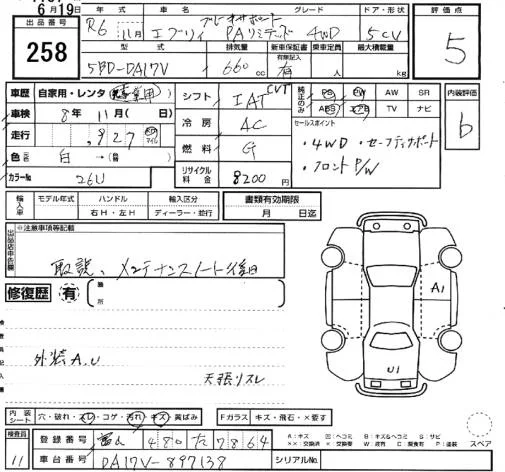 6月19日
出品番号
258
年式 車名 グレード ドア・形状
R6 11月 エブリィ ブレーキサポート PAリミテッド 4WD 5CV
型式 排気量 新車保証書 乗車定員 最大積載量
有無記入
5BD-DA17V 660cc 有 kg
評価点
5
車歴 自家用・レンタ・事業用
車検 8年11月(日)
走行 ,927 マイル
色 白→(替)
カラーNo 26U
シフト IAT CVT
冷房 AC
燃料 G
リサイクル料金 8200円
純正のみ PS PW AW SR
ABS エアB TV ナビ
セールスポイント
・4WD ・セーフティサポート
・フロントP/W
内装評価
b
輸入車 モデル年式 ハンドル 輸入区分
右H・左H ディーラー・並行
書類有効期限
月 日迄
出品店申告欄
※注意事項等記載
取説、メンテナンスノート後日
修復歴 有 箇所
検査員記入欄
外装A,U
天張りスレ
A1
U1
内装シート 穴・破れ・スレ・コゲ・汚れ・キズ・黄ばみ
Fガラス キズ・飛石・×要す
スペア
検査員
11
登録番号 480 た 7864
車台番号 DA17V-897138
シリアルNo.
A:キズ U:ヘコミ B:キズ&ヘコミ S:サビ
××:交換済 ×:要交換 W:波有 C:腐食有 P:塗装